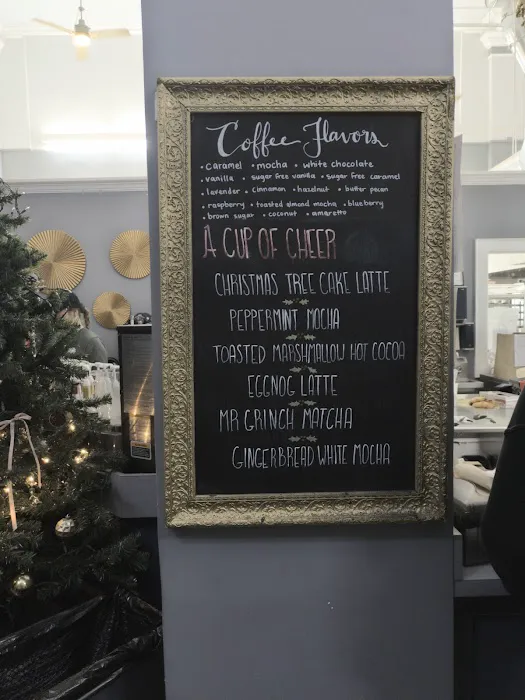 Coffee Flavors
• caramel • mocha • white chocolate
• vanilla • sugar free vanilla • sugar free caramel
• lavender • cinnamon • hazelnut • butter pecan
• raspberry • toasted almond mocha • blueberry
• brown sugar • coconut • amaretto
A CUP OF CHEER
CHRISTMAS TREE CAKE LATTE
PEPPERMINT MOCHA
TOASTED MARSHMALLOW HOT COCOA
EGGNOG LATTE
MR GRINCH MATCHA
GINGERBREAD WHITE MOCHA